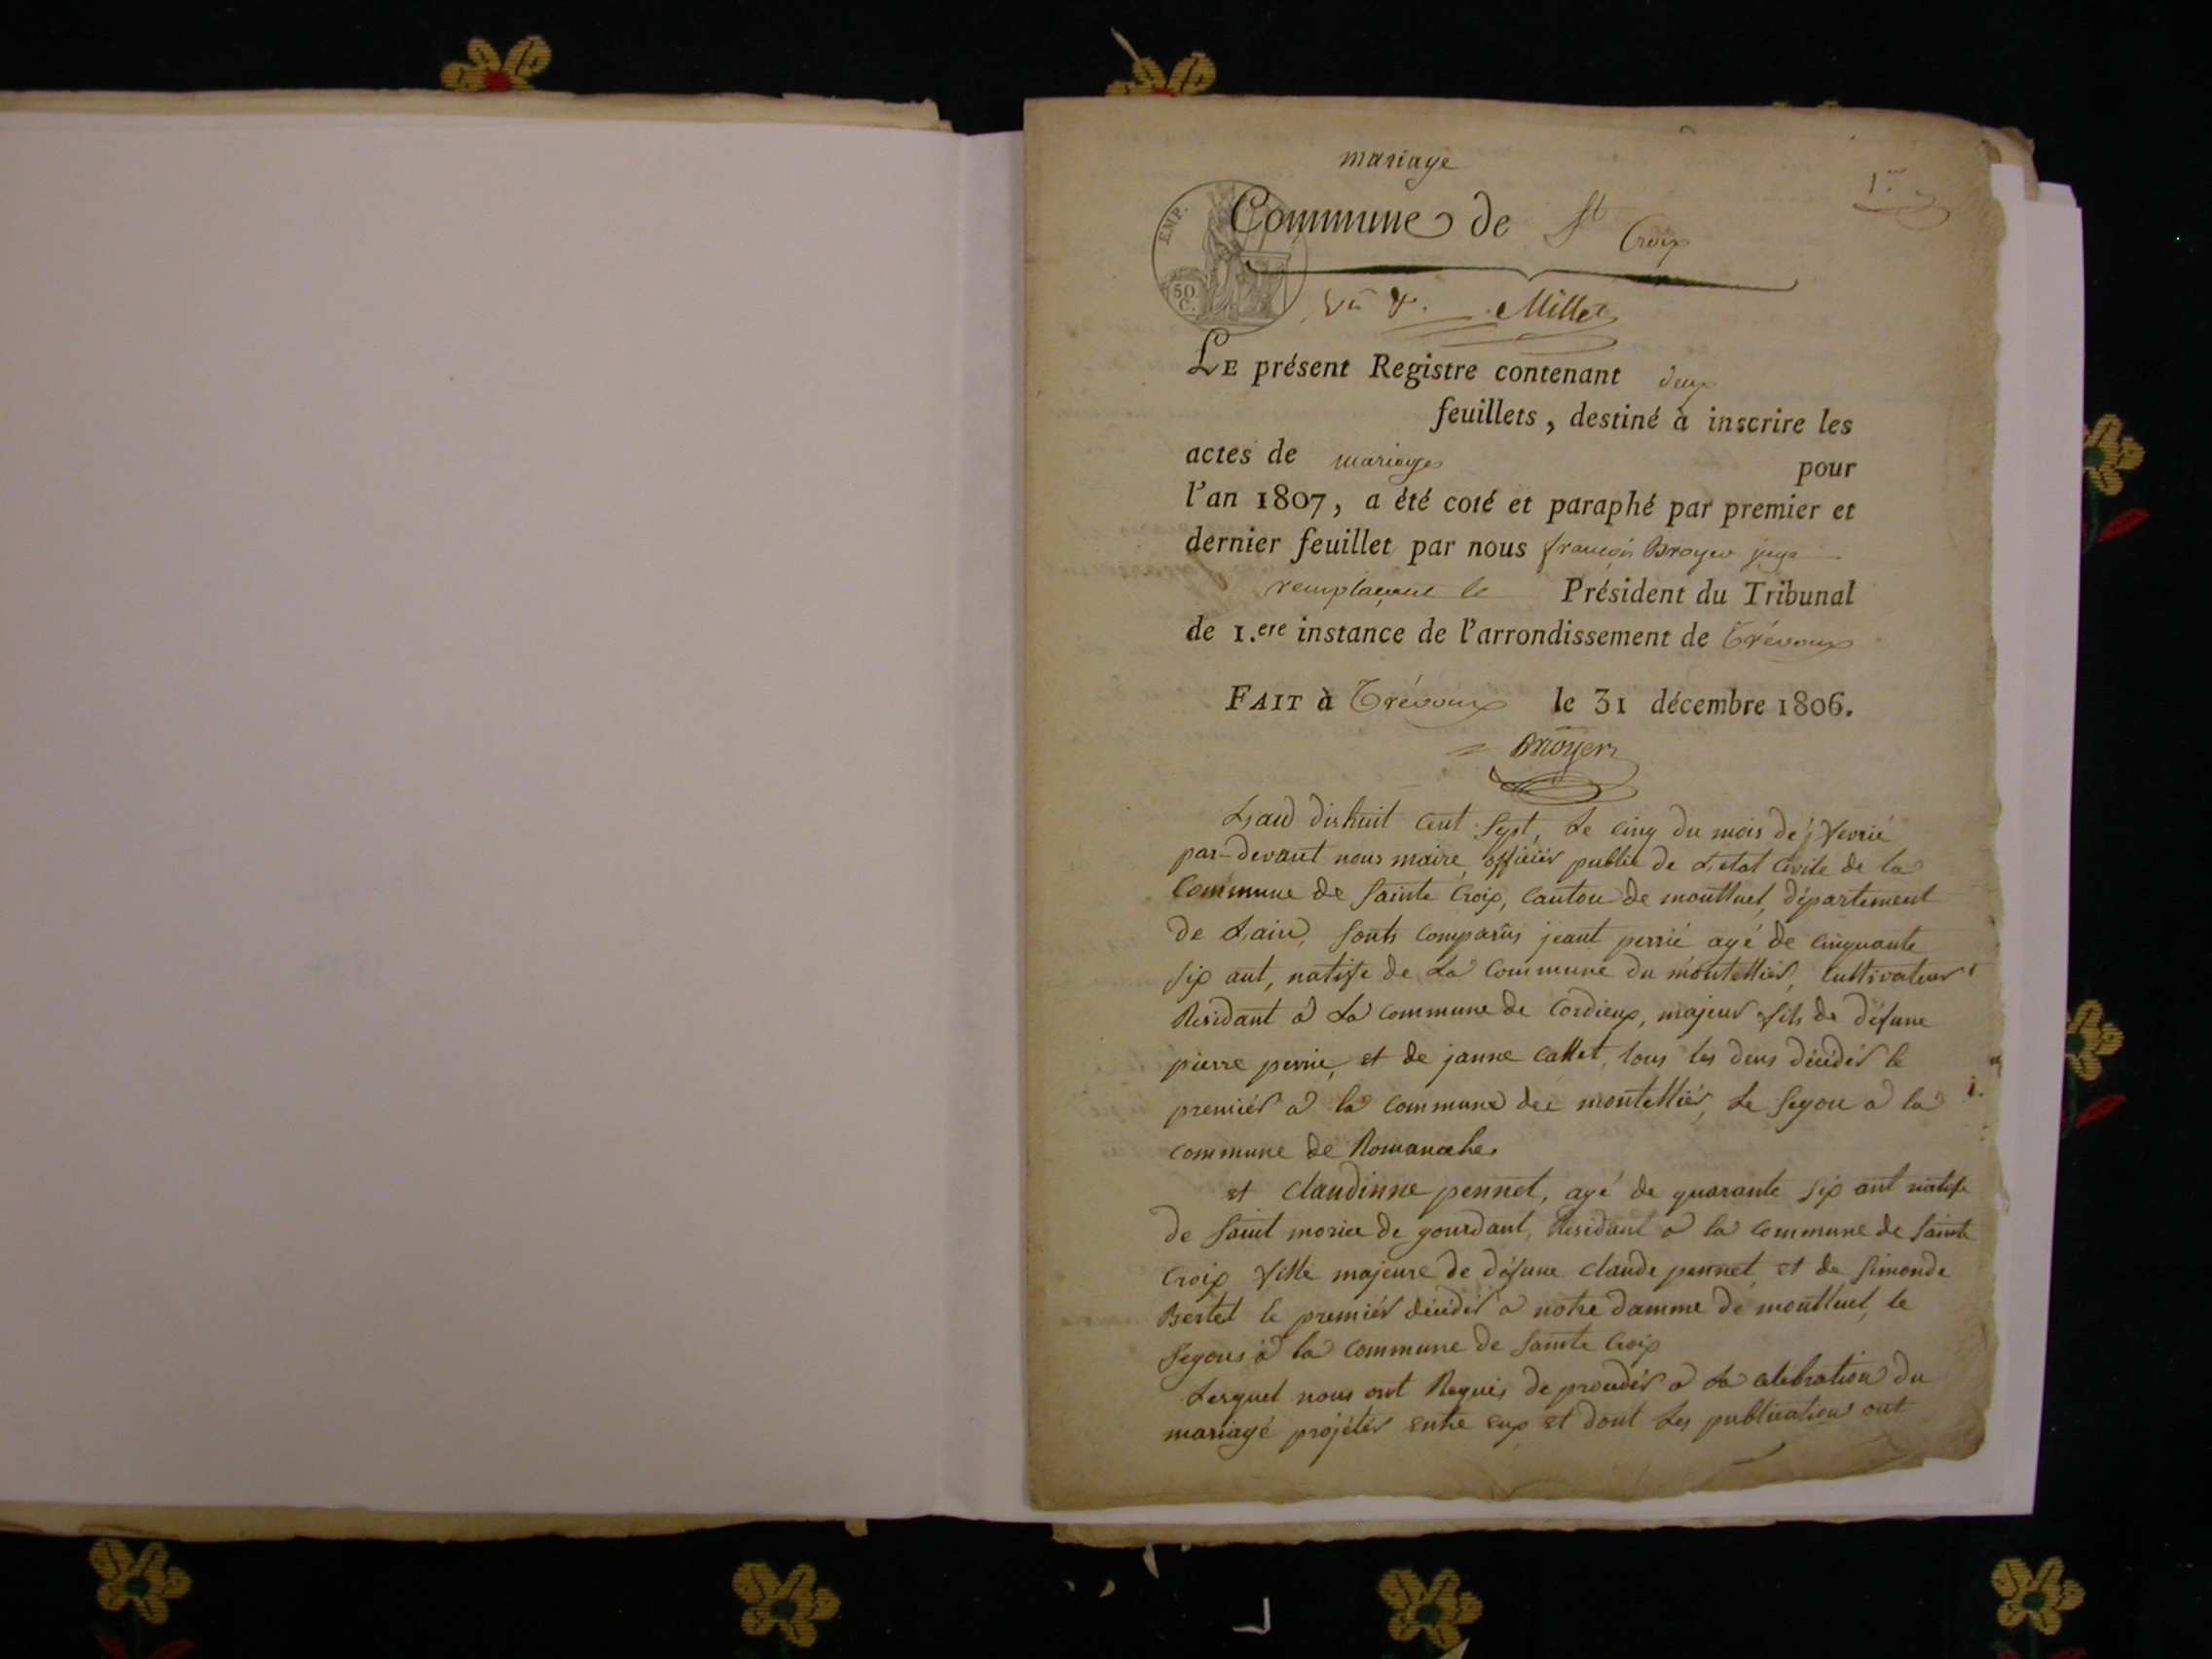 mariage
1er
EMP.
50.
C.
Commune de St Croix
Millet
LE présent Registre contenant deux
feuillets, destiné à inscrire les
actes de mariages pour
l'an 1807, a été coté et paraphé par premier et
dernier feuillet par nous françois Broyer juge
remplaçant le Président du Tribunal
de 1.ere instance de l'arrondissement de Trévoux
FAIT à Trévoux le 31 décembre 1806.
Broyer
L'an dishuit cent sept, Le cinq du mois de fevrié
par-devant nous maire, officiér public de L'etat Civile de la
Commune de Sainte Croix, Canton de montluel, département
de L'ain, sonts comparûs jeant perrié agé de cinquante
six ant, natife de La Commune du montelliér, Cultivateur
Residant a La commune de Cordieux, majeur fils de défunc
pierre perrié, et de janne Callet, tous les deus décédér le
premiér a la commune dee montelliér, Le segon a la
commune de Romaneche.
et Claudinne pennet, agé de quarante six ant natife
de Saint morice de gourdant, Residant a la commune de Sainte
Croix fille majeure de défunc claude pennet et de Simonde
Bertet le premiér décédér a notre damme de montluel, le
segons a la commune de Sainte Croix
Lesquel nous ont Requis de procedér a La celébration du
mariagé projétér entre eux et dont Les publication ont